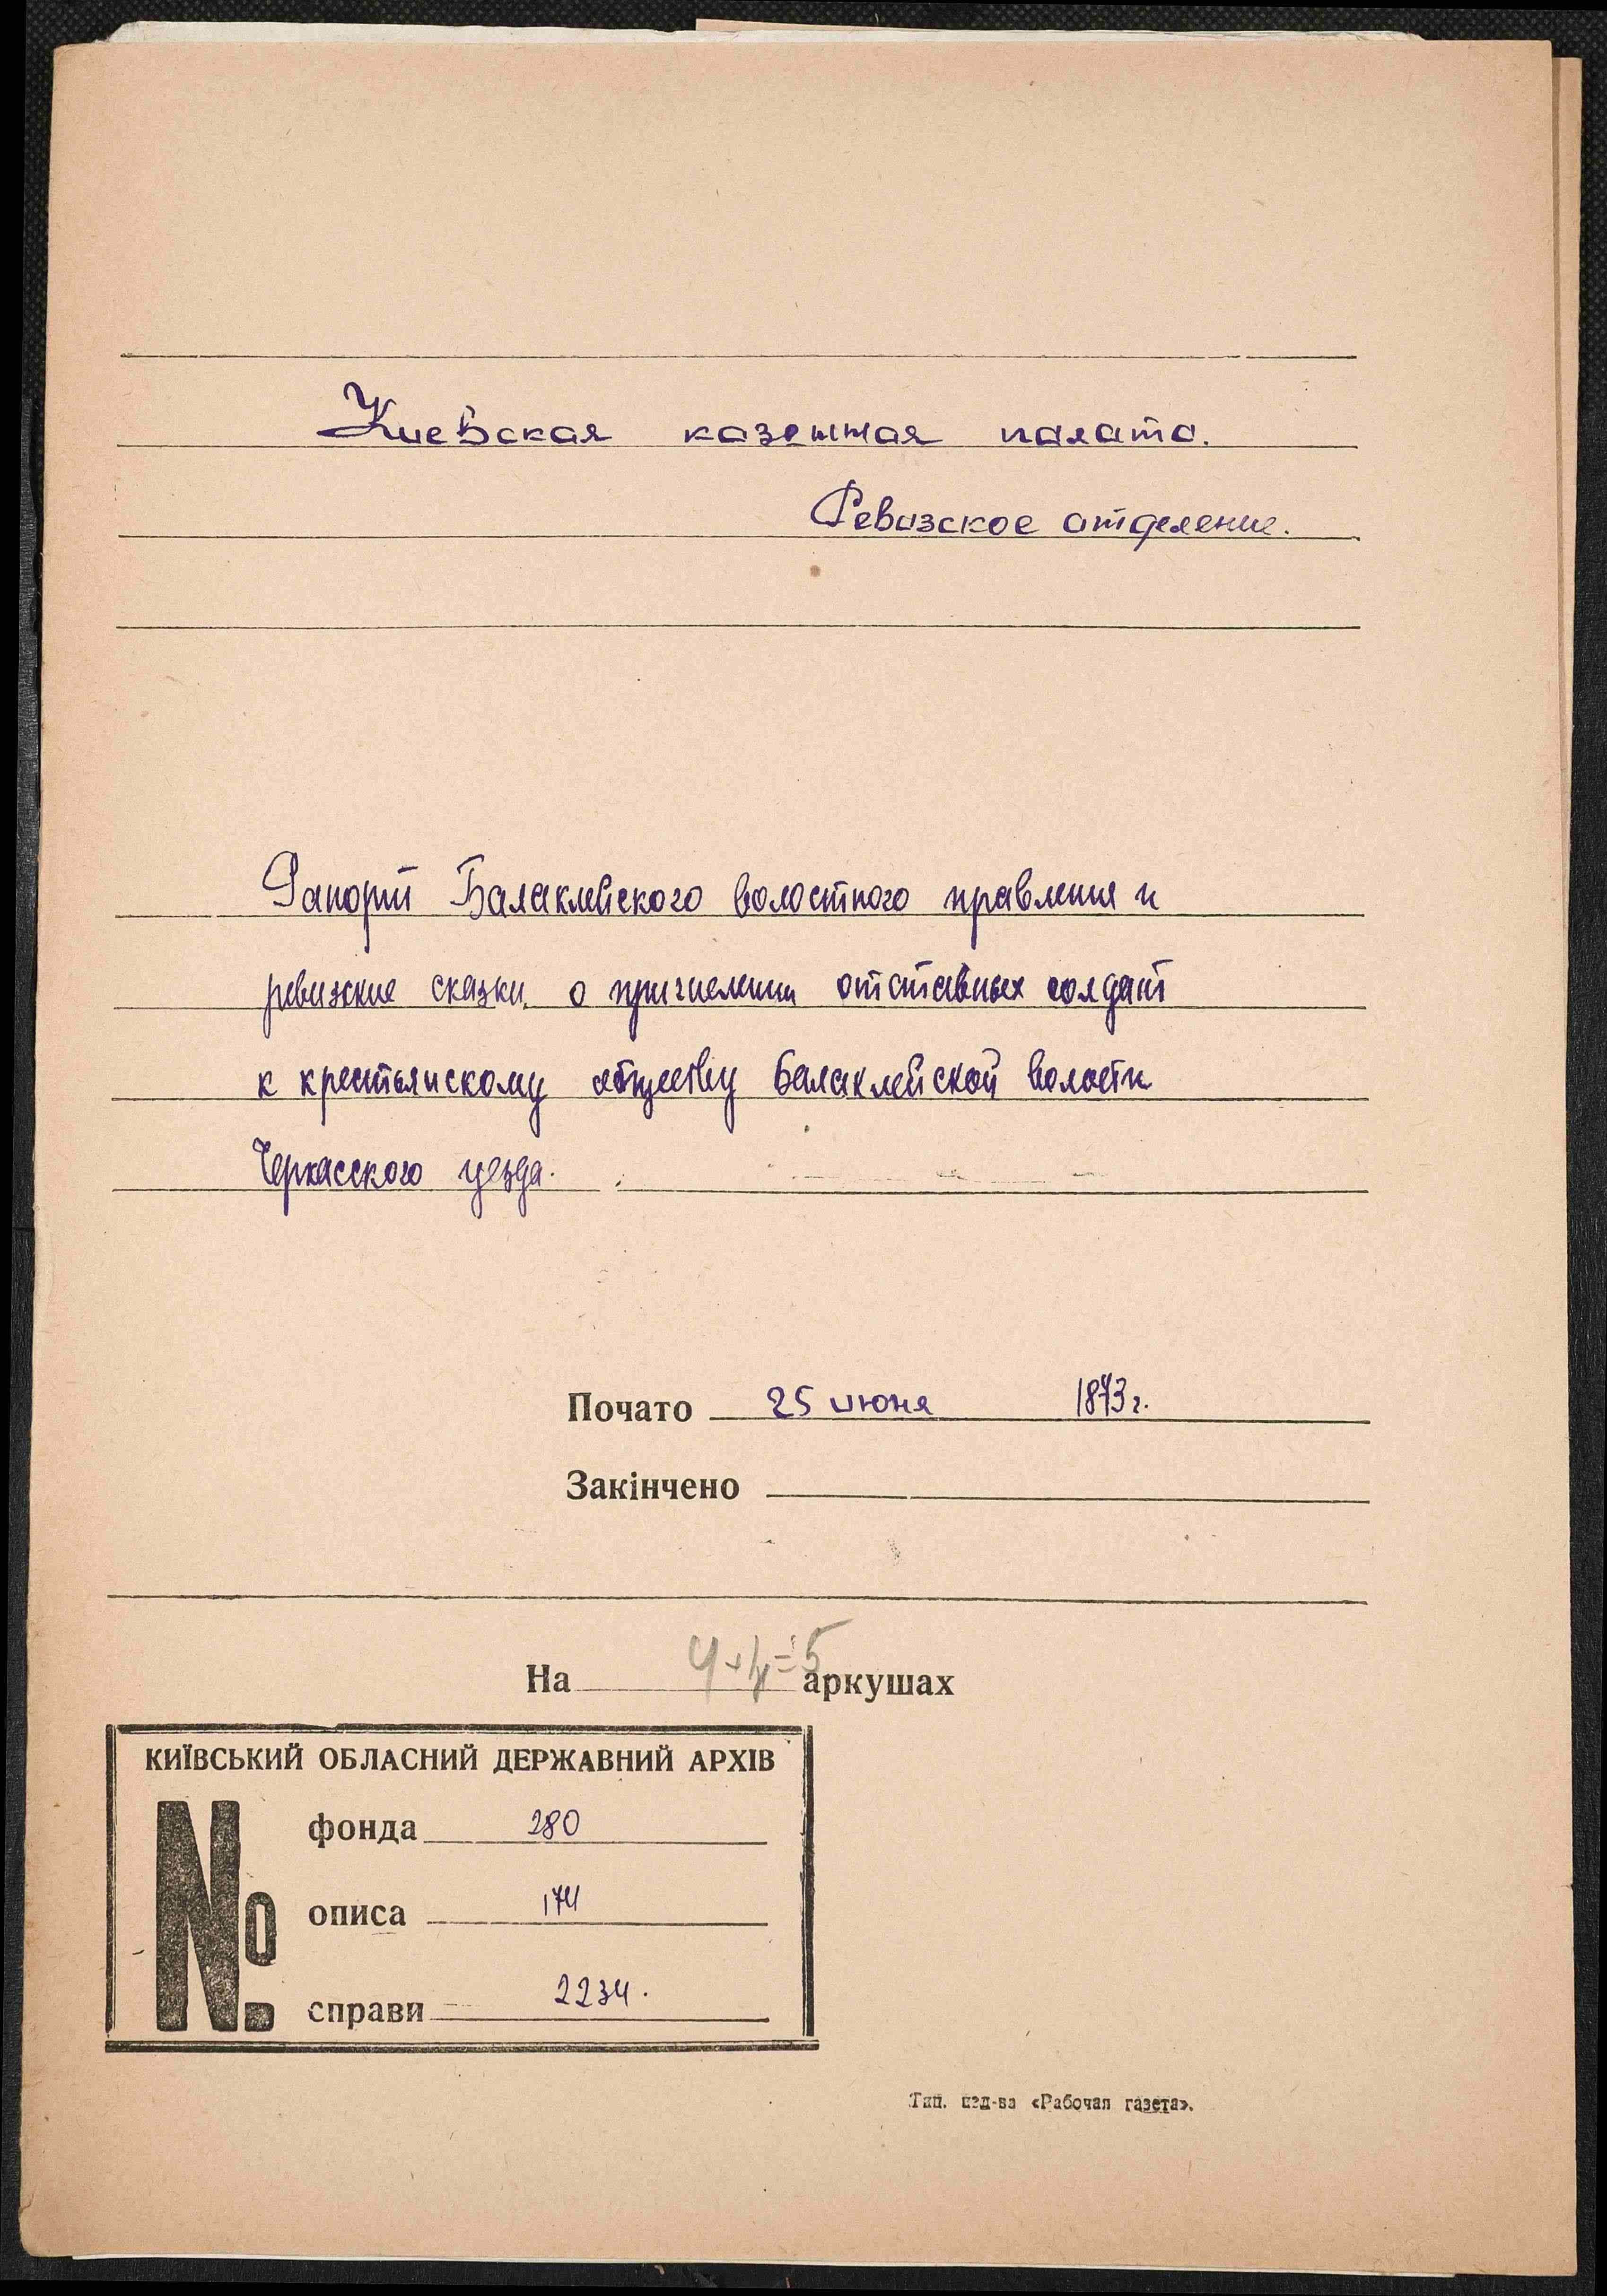 Киевская казенная палата.
Ревизское отделение.
Рапорт Балаклейского волостного правления и
ревизские сказки о причислении отставных солдат
к крестьянскому обществу Балаклейской волости
Черкасского уезда.
Почато 25 июня 1873 г.
Закінчено
На 4+1=5 аркушах
КИЇВСЬКИЙ ОБЛАСНИЙ ДЕРЖАВНИЙ АРХІВ
№
фонда 280
описа 174
справи 2234.
Тип. изд-ва «Рабочая газета».